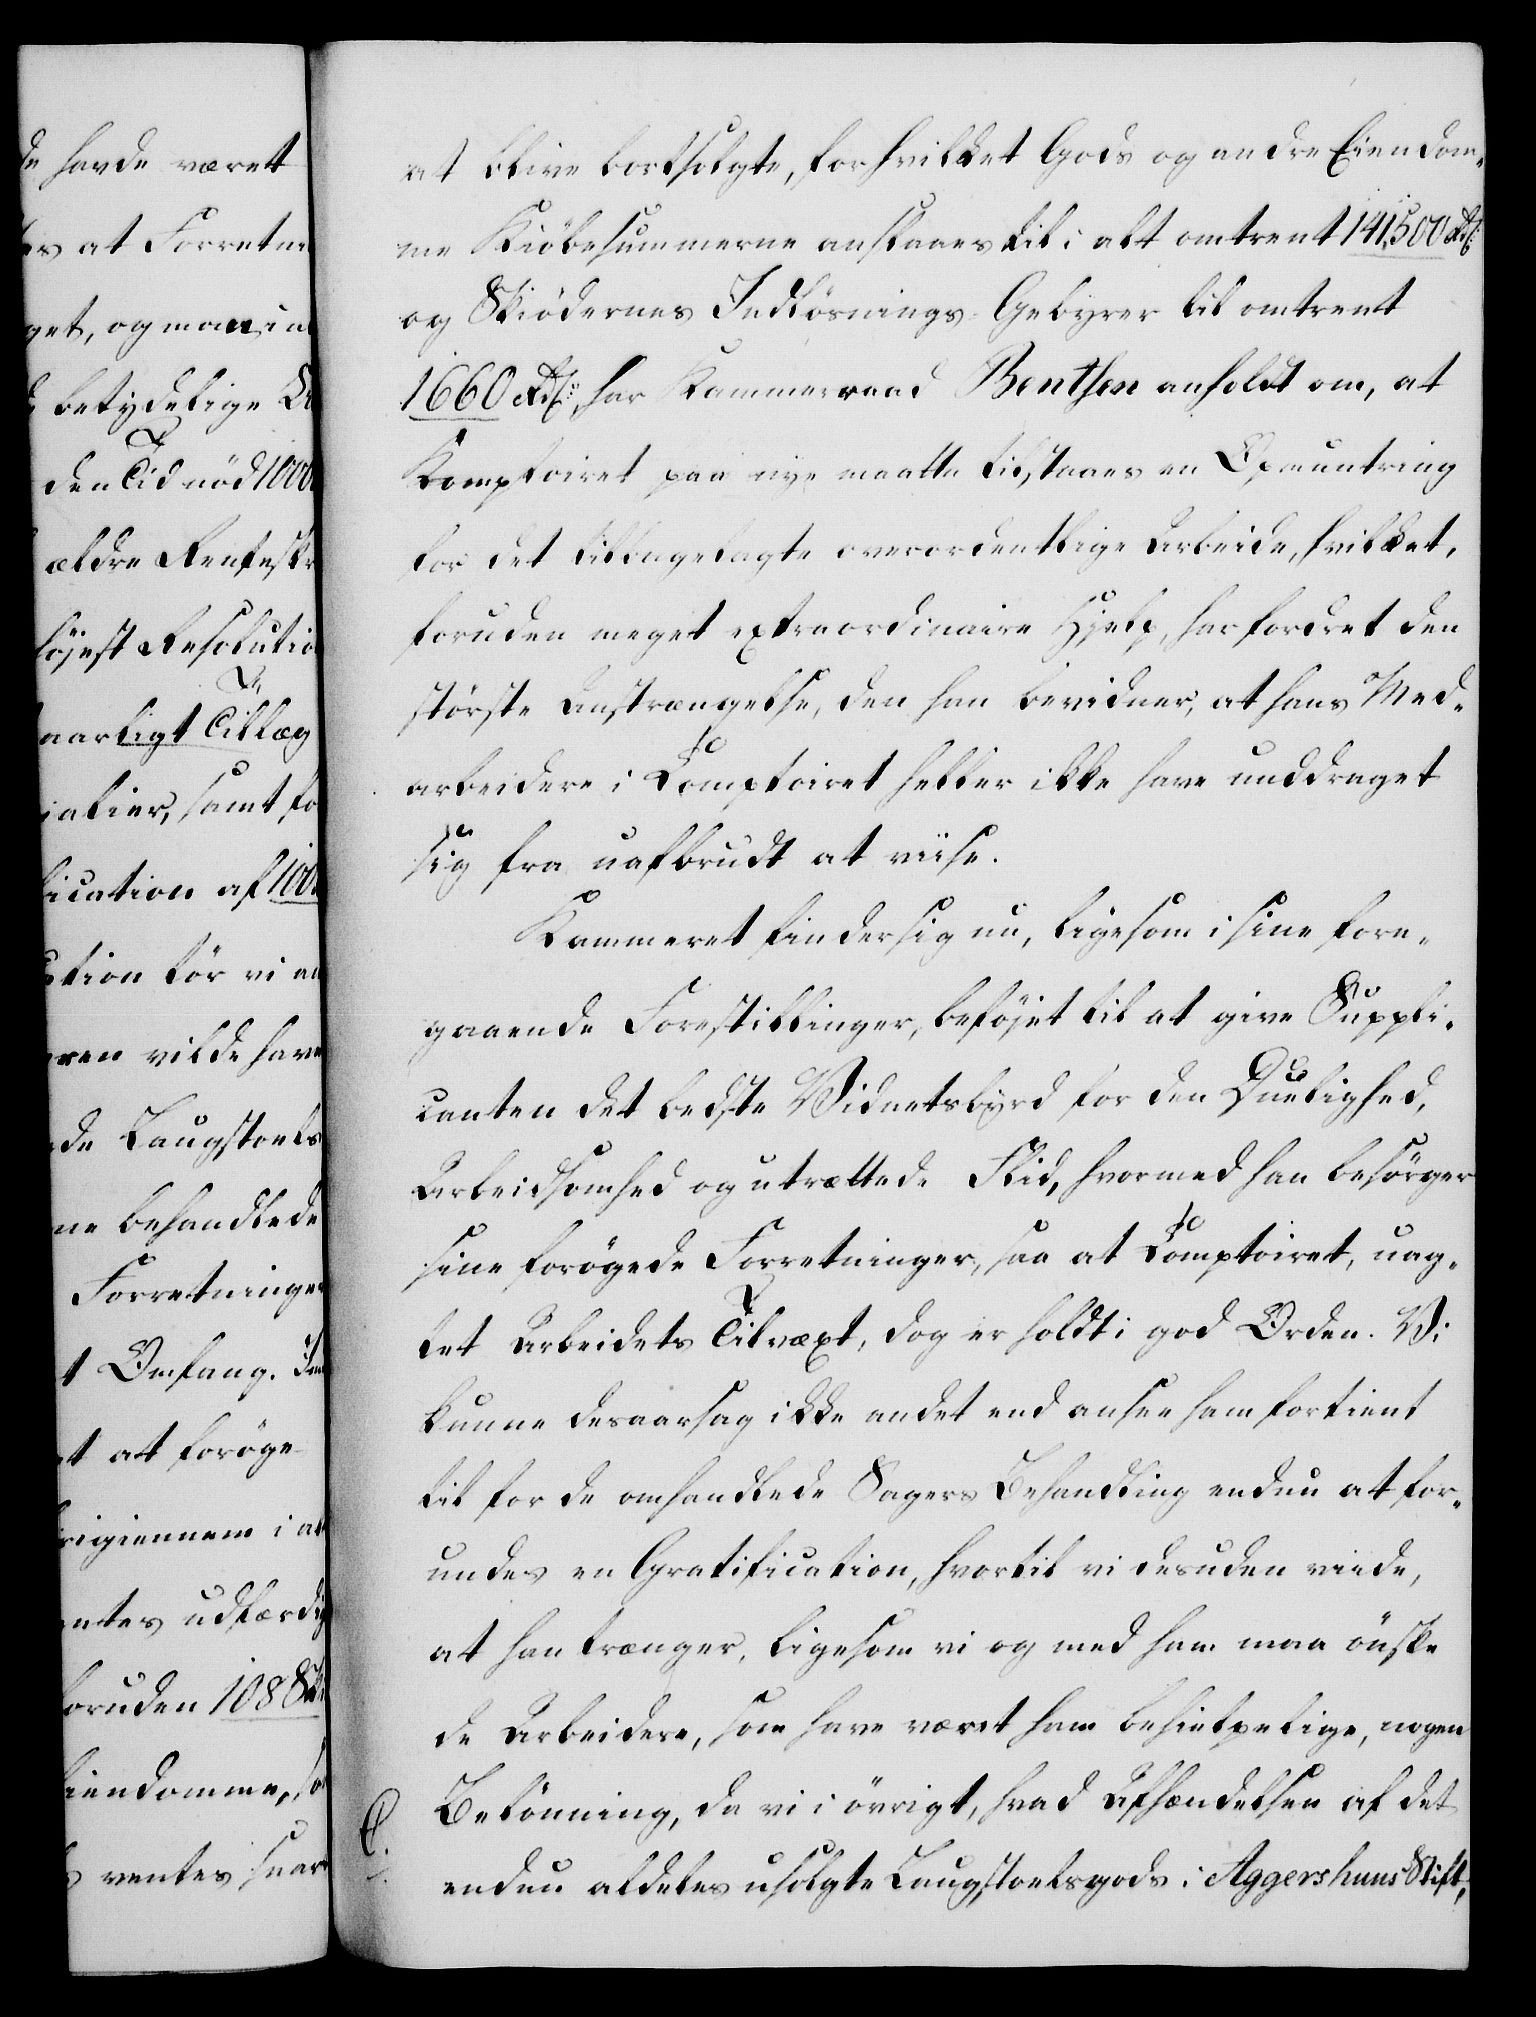 de havde været
es at Forretn
get, og man in
betydelige
den Tid nød 1000
ældre Renteskr
höjest Resolutio
aarligt Tillæg
ialier, samt fo
fication af 100
ution tör vi
ren vilde have
de Laugstoels
ne behandlede
Forretninger
t Omfang.
t at foröge
igiennem i alt
ntes udfærdig
foruden 108 Sk
Eiendomme, so
s ventes snar
at blive bortsolgte, for hvilket Gods og andre Eiendom-
me Kiöbesummerne anslaaes til i alt omtrent 141,500 Rd.
og Skiödernes Indlösnings-Gebyrer til omtrent
1660 Rd., har Kammerraad Benthen anholdt om, at
Komptoiret paa nye maatte tilstaaes en Opmuntring
for det tilbagelagte overordentlige Arbeide, hvilket,
foruden meget extraordinaire Hjelp, har fordret den
störste Anstrængelse, den han bevidner, at hans Med-
arbeidere i Comptoiret heller ikke have unddraget
sig fra uafbrudt at viise.
Kammeret finder sig nu, ligesom i sine fore-
gaaende Forestillinger, beföjet til at give Suppli-
canten det bedste Vidnetsbyrd for den Duelighed,
Arbeidsomhed og utrættede Flid, hvormed han besörger
sine forögede Forretninger, saa at Comptoiret, uag-
tet Arbeidets Tilvæxt, dog er holdt i god Orden. Vi
kunne desaarsag ikke andet end ansee ham fortient
til for de omhandlede Sagers Behandling endnu at for-
undes en Gratification, hvortil vi desuden viide,
at han trænger, ligesom vi og med ham maa önske
de Arbeidere, som have været ham behielpelige, nogen
Belönning, da vi i övrigt, hvad Afhændelsen af det
endnu aldeles usolgte Laugstoelsgods i Aggershuus Stift,